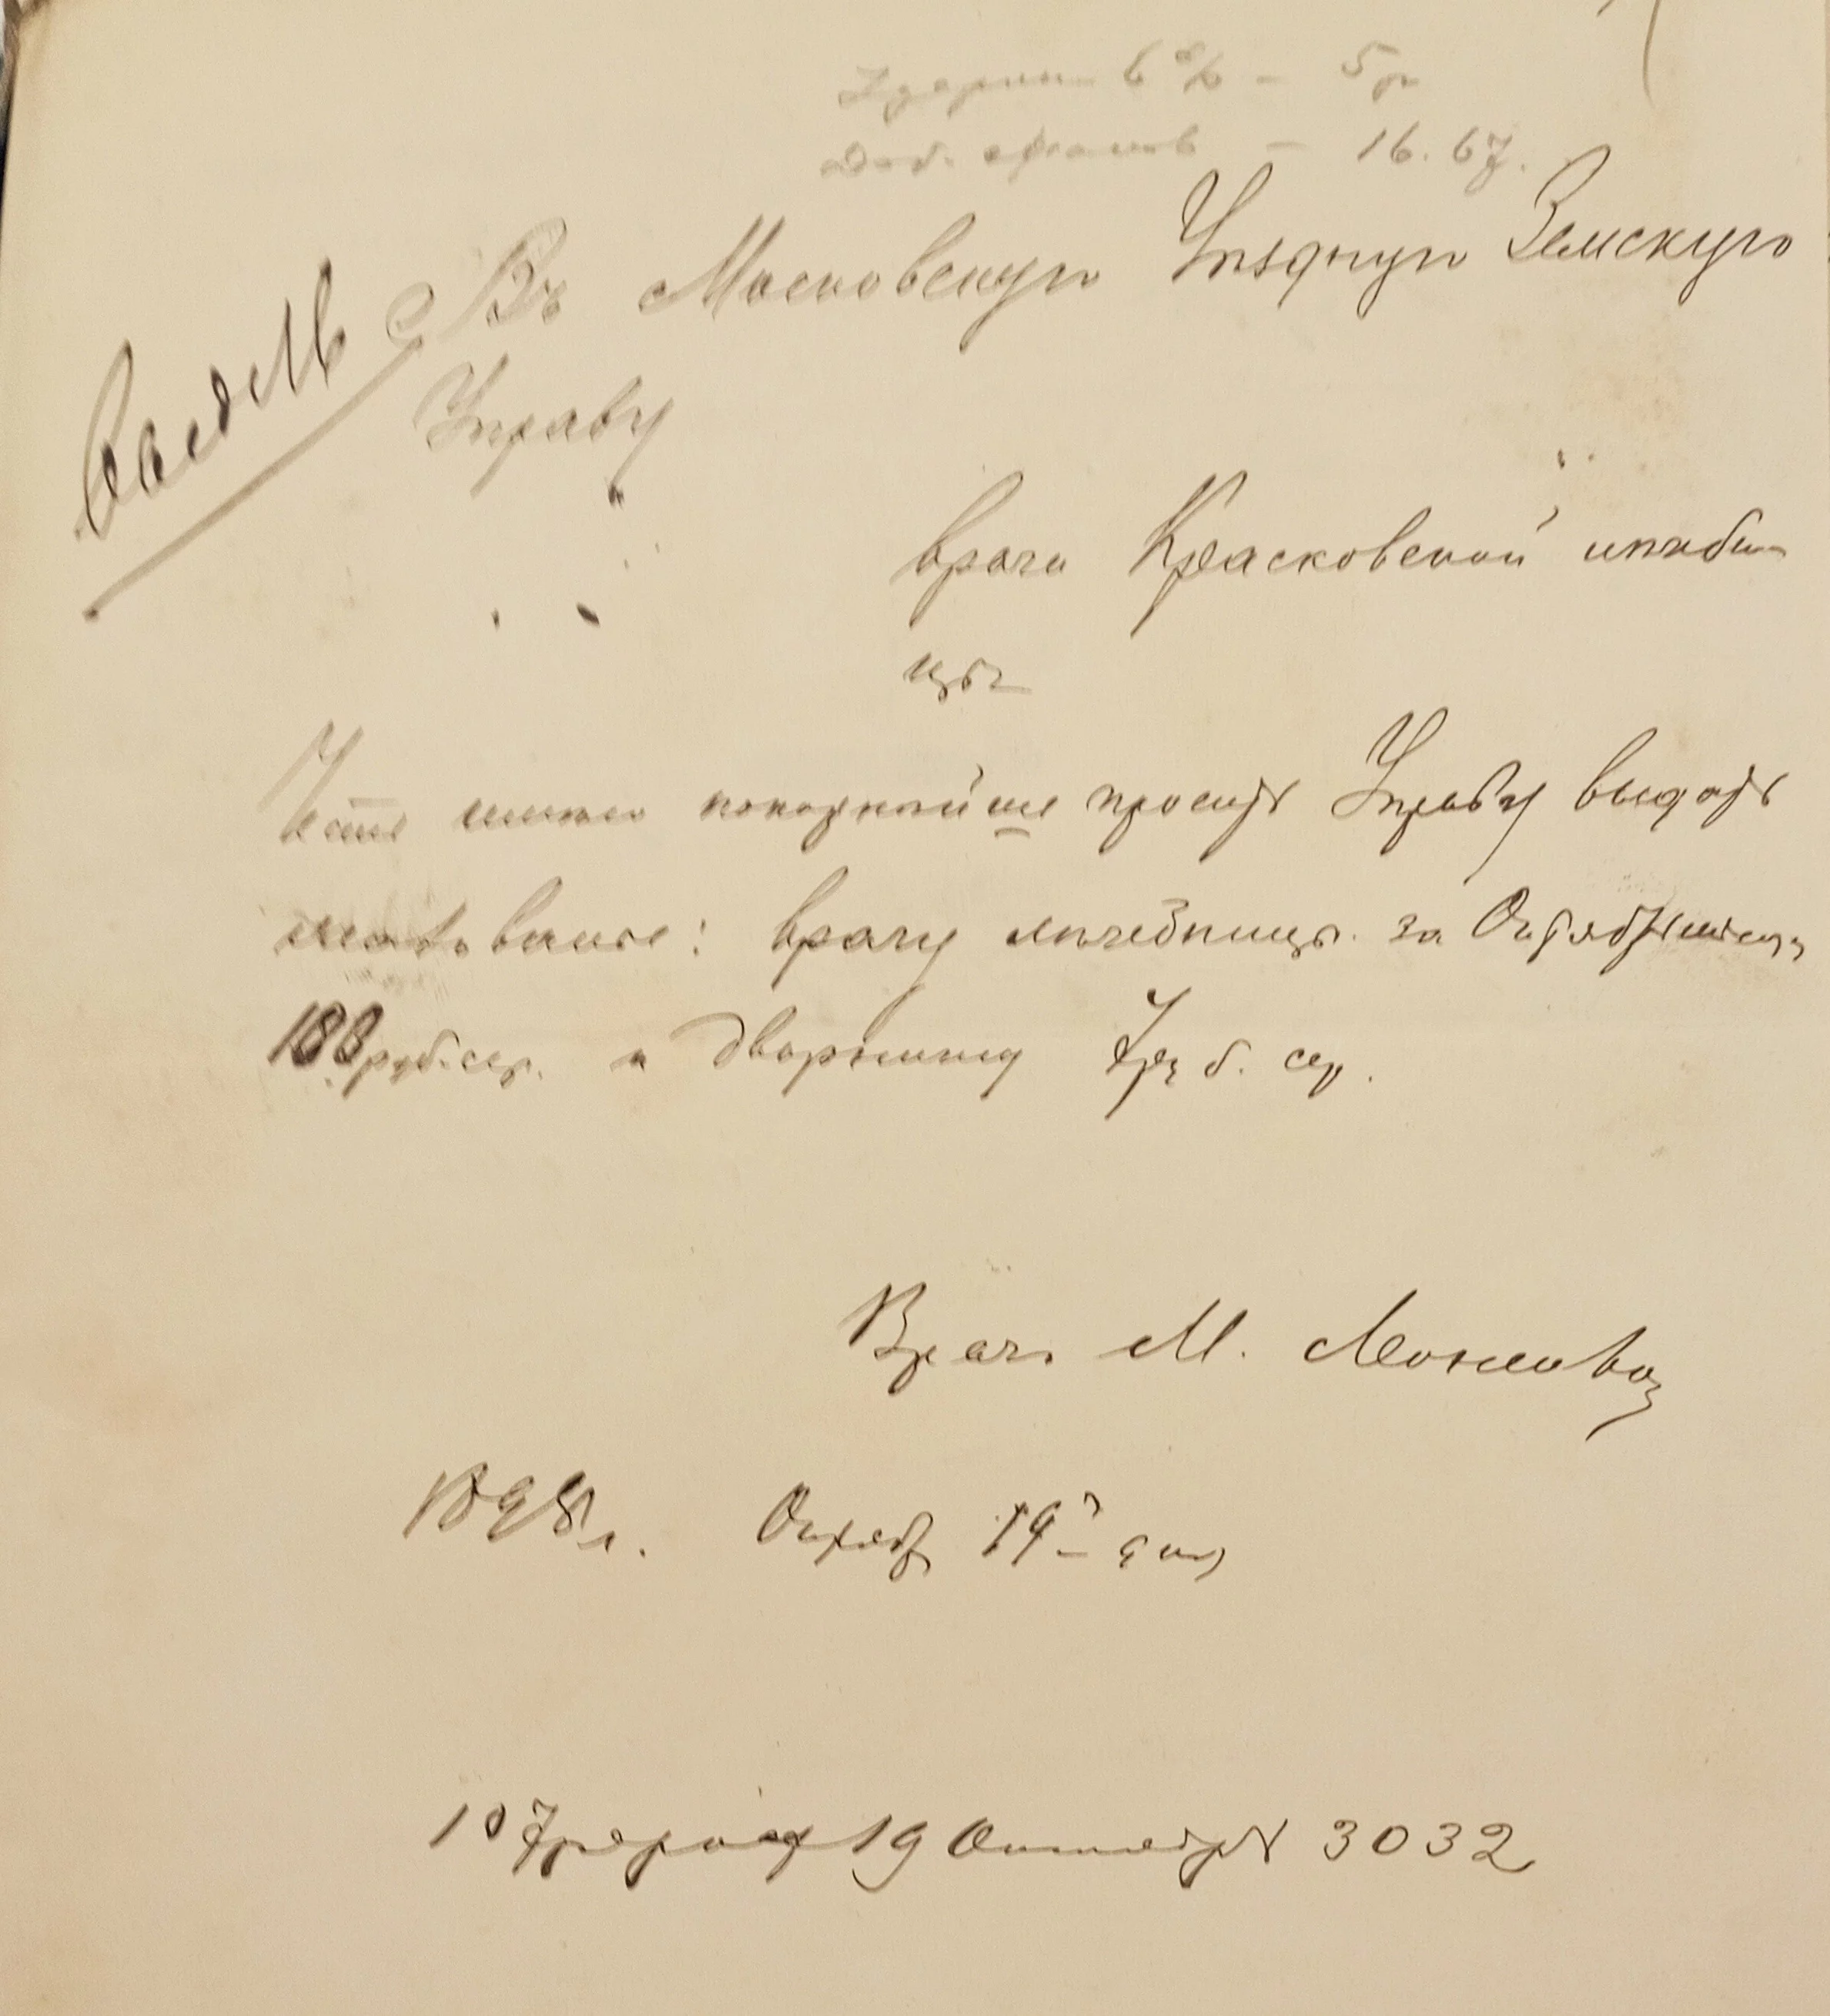 6% - 5 р
Доб. - 16.67.
Въ Московскую Уѣздную Земскую
Управу
врача Красковской лѣчебни-
цы
Честь имѣю покорнѣйше просить Управу выдать
жалованье: врачу лѣчебницы за Октябрь мѣсяцъ
100 руб. сер. и дворнику 7 руб. сер.
Врачъ М.
1898 г. Октяб 19го дня
19 Октября 3032